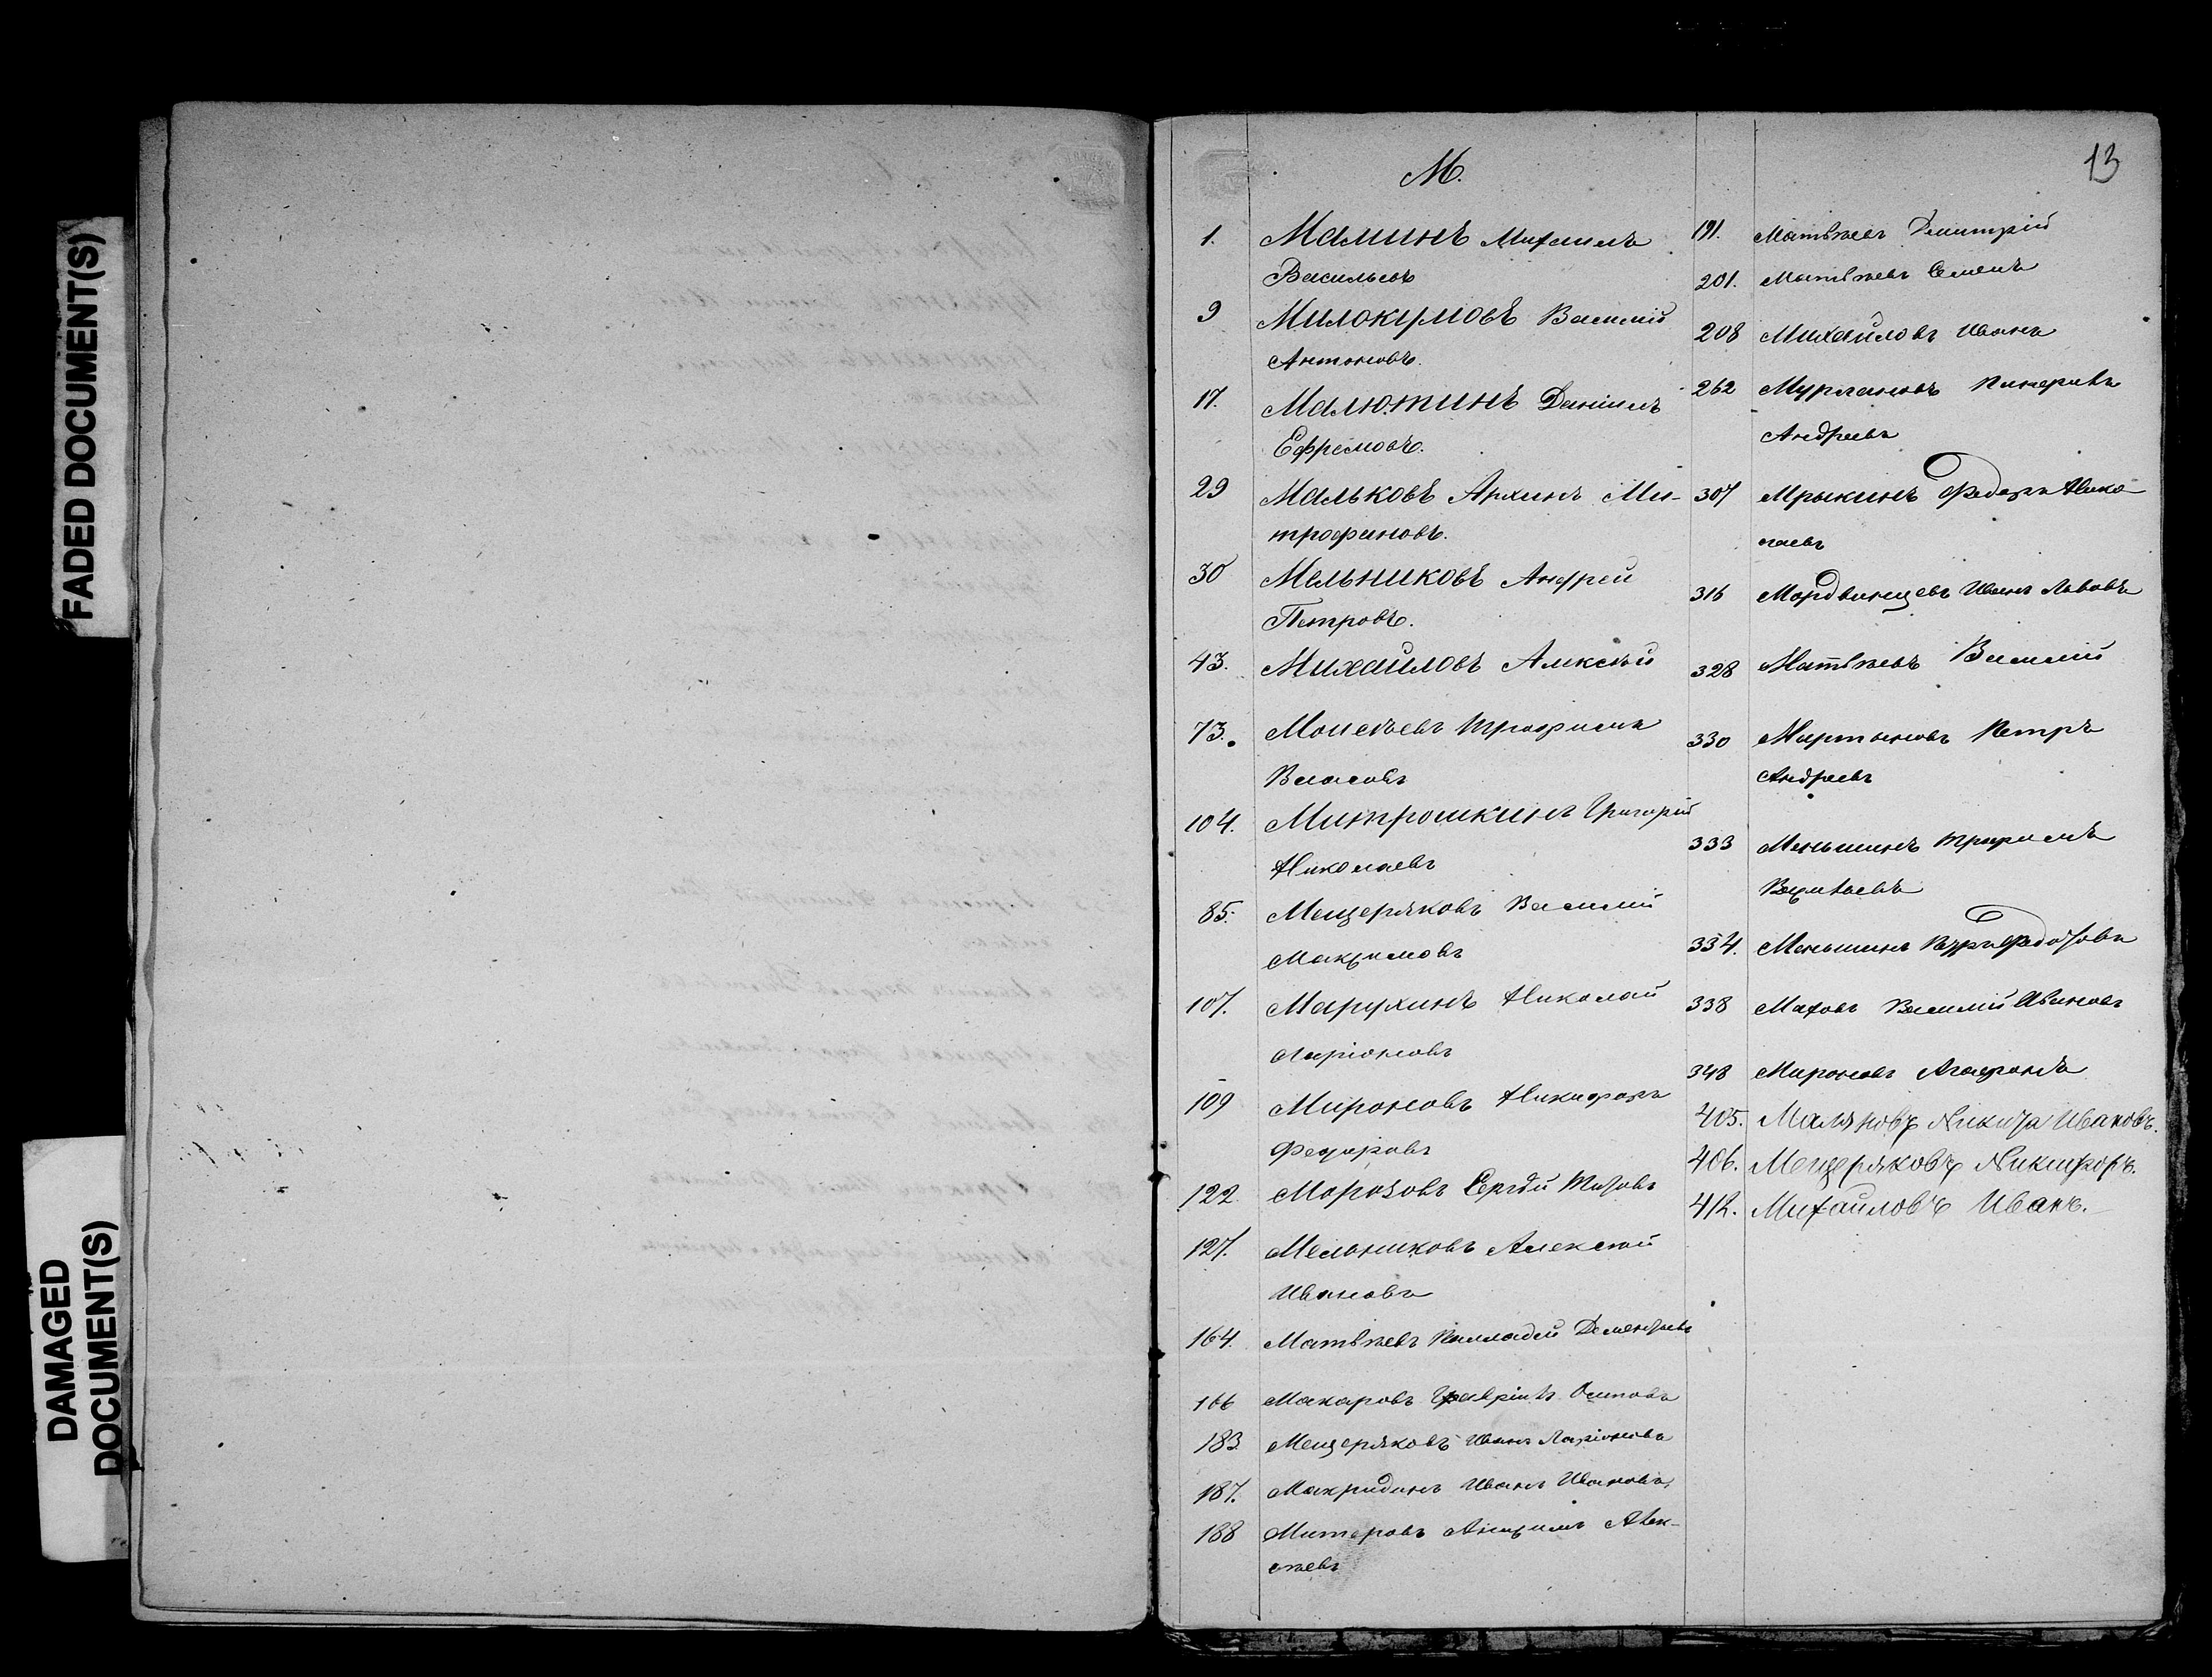 FADED DOCUMENT(S)
DAMAGED
DOCUMENT(S)
13
М.
1. Малинъ Михаилъ
Васильевъ
9 Милокумовъ Василій
Антоновъ.
17. Малютинъ Даніилъ
Ефремовъ.
29 Мальковъ Архипъ Ми-
трофановъ.
30 Мельниковъ Андрей
Петровъ.
43. Михайловъ Алексѣй
73. Моисѣевъ Трофимъ
Власовъ
104. Митрошкинъ Григорій
Николаевъ
85. Мещеряковъ Василій
Максимовъ
107. Марухинъ Николай
Ларіоновъ
109 Мироновъ Никифоръ
Федоровъ
122 Морозовъ Сергѣй Титовъ
127. Мельниковъ Алексѣй
Ивановъ
164. Матвѣевъ Палладій Дементьевъ
166 Макаровъ Гавріилъ Осиповъ
183 Мещеряковъ Иванъ Ларіоновъ
187. Макридинъ Иванъ Ивановъ
188 Митеровъ Анфимъ Алек-
сѣевъ
191. Матвѣевъ Дмитрій
201. Матвѣевъ Семенъ
208 Михайловъ Иванъ
262 Мурлановъ
Андреевъ
307 Мрыкинъ Федоръ Нико
лаевъ
316 Мордвинцевъ Иванъ Львовъ
328 Матвѣевъ Василій
330 Мартыновъ Петръ
Андреевъ
333 Меньшинъ Трифилъ
334. Меньшинъ Федотовъ
338 Маховъ Василій Ивановъ
348 Мироновъ Агафонъ
405. Маляровъ Никита Ивановъ.
406. Мещеряковъ Никифоръ.
412. Михайловъ Иванъ.